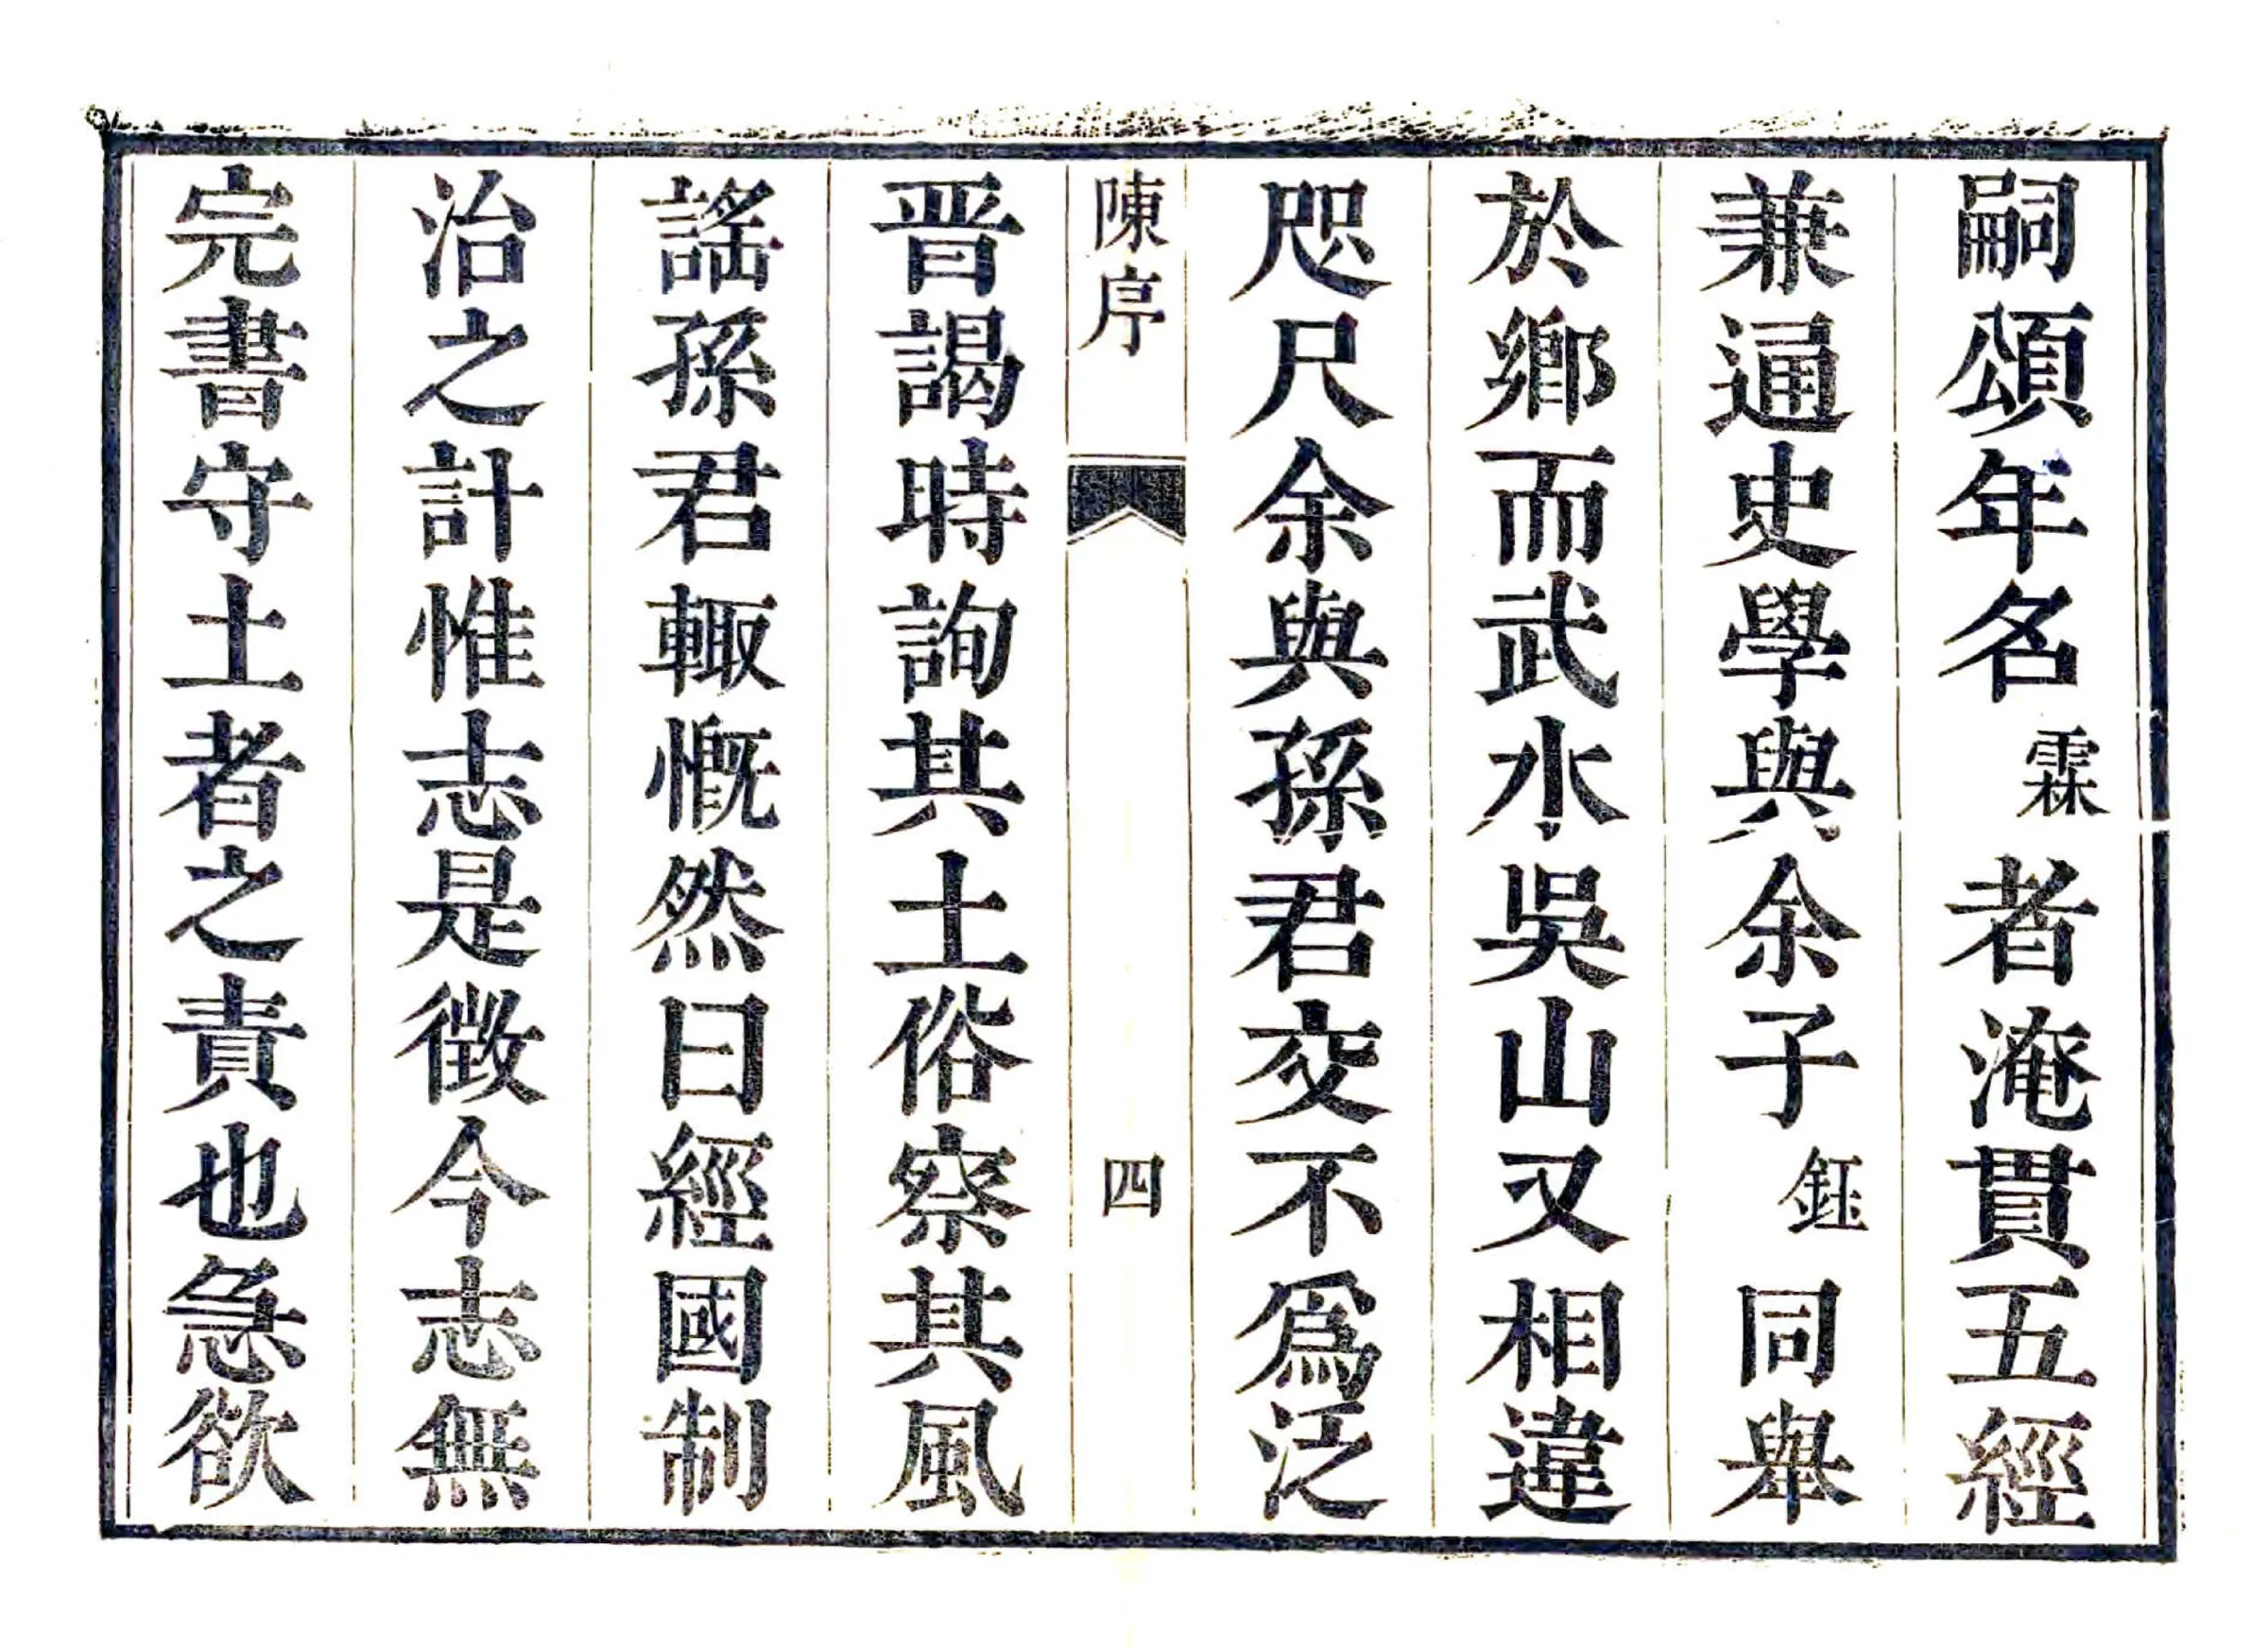 嗣頌年名霖者淹貫五經
兼通史學與余子鈺同舉
於鄉而武水吳山又相違
咫尺余與孫君交不爲泛
陳序 四
晋謁時詢其土俗察其風
謠孫君輙慨然曰經國制
治之計惟志是徴今志無
完書守土者之責也急欲